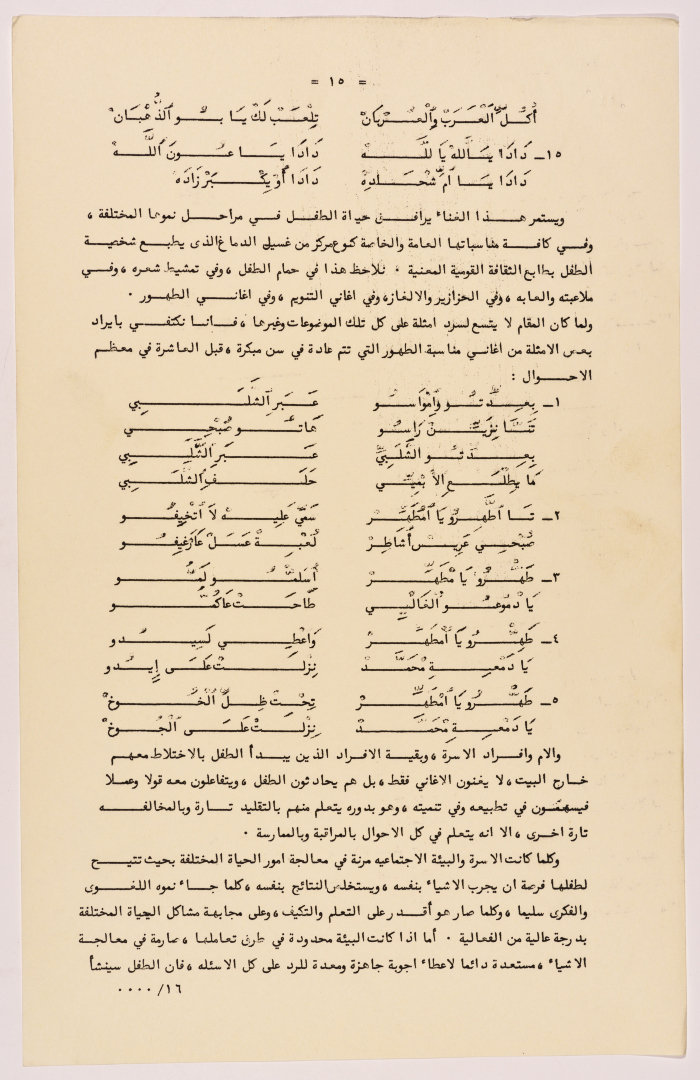 = ١٥ =
أكل العرب والعربان تلعب لك يا بو الذهبان
١٥ــ دادا يسالله يا لله دادا يا عون الله
دادا يا ام شحادة دادا أو يكبر زاده
ويستمر هذا الغناء يرافق حياة الطفل في مراحل نموها المختلفة ،
وفي كافة مناسباتها العامة والخاصة كنوع مركز من غسيل الدماغ الذى يطبع شخصية
الطفل بطابع الثقافة القومية المعنية ٠ نلاحظ هذا في حمام الطفل ، وفي تمشيط شعره ، وفي
ملاعبته والعابه ، وفي الحزازير والالغاز ، وفي اغاني التنويم ، وفي اغاني الطهور ٠
ولما كان المقام لا يتسع لسرد امثلة على كل تلك الموضوعات وغيرها ، فاننا نكتفي بايراد
بعض الامثلة من اغاني مناسبة الطهور التي تتم عادة في سن مبكرة ، قبل العاشرة في معظم
الاحوال :
١ــ بعدتو وامواسو عبر الشلبي
تتا نزين راسو هاتو صبحي
بعدتو الشلبي عبر الشلبي
ما يطلع الا بعبتي حلف الشلبي
٢ــ تا اطهرو يا امطهر سمي عليه لا اتخيفو
صبحي عريس أشاطر لعبة عسل عارغيفو
٣ــ طهرو يا مطهر أسلمو لمو
يا دموعو الغالبي طاحت عاكمو
٤ــ طهرو يا امطهر واعطي لسيدو
يا دمعة محمد نزلت على إيدو
٥ــ طهرو يا امطهر تحت ظل الخوخ
يا دمعة محمد نزلت على الجوخ
والام وافراد الاسرة ، وبقية الافراد الذين يبدأ الطفل بالاختلاط معهم
خارج البيت ، لا يغنون الاغاني فقط ، بل هم يحادثون الطفل ، ويتفاعلون معه قولا وعملا
فيسهمون في تطبيعه وفي تنميته ، وهو بدوره يتعلم منهم بالتقليد تارة وبالمخالفه
تارة اخرى ، الا انه يتعلم في كل الاحوال بالمراقبة وبالممارسة ٠
وكلما كانت الاسرة والبيئة الاجتماعيه مرنة في معالجة امور الحياة المختلفة بحيث تتيح
لطفلها فرصة ان يجرب الاشياء بنفسه ، ويستخلص النتائج بنفسه ، كلما جاء نموه اللغوى
والفكرى سليما ، وكلما صار هو أقدر على التعلم والتكيف ، وعلى مجابهة مشاكل الحياة المختلفة
بدرجة عالية من الفعالية ٠ أما اذا كانت البيئة محدودة في طرق تعاملها ، صارمة في معالجة
الاشياء ، مستعدة دائما لاعطاء اجوبة جاهزة ومعدة للرد على كل الاسئله ، فان الطفل سينشأ
١٦/ ٠٠٠٠